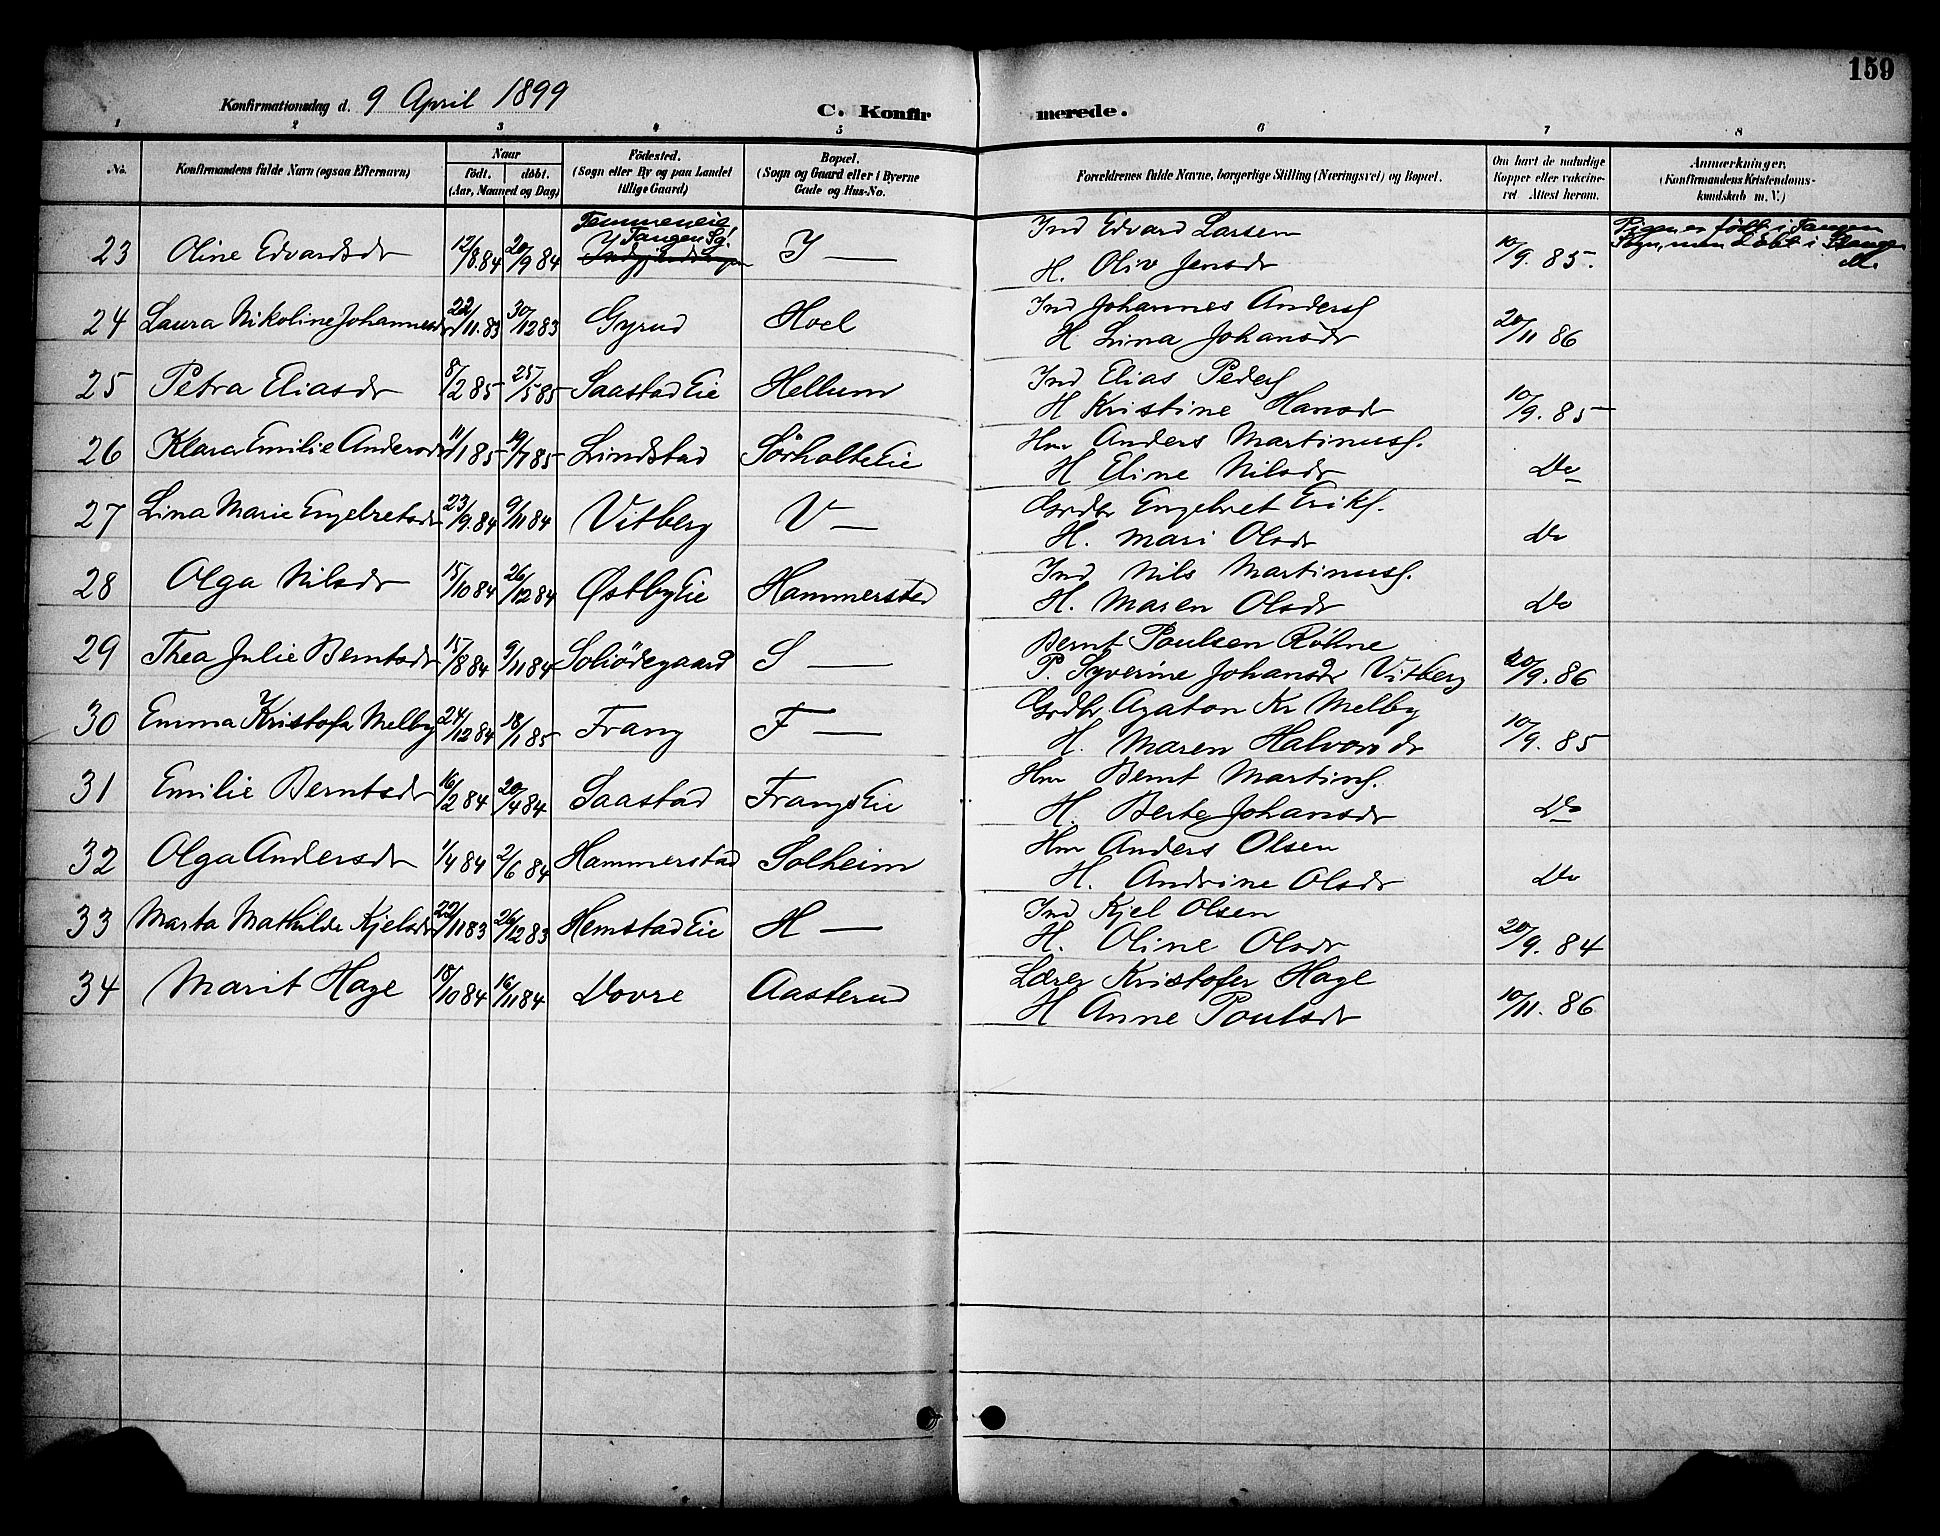 159
Konfirmationsdag d. 9 April 1899
C. Konfirmerede.
1 2 3 4 5 6 7 8
No. Konfirmandens fulde Navn (ogsaa Efternavn) Naar Födt. döbt. (Aar, Maaned og Dag) Födested. (Sogn eller By og paa Landet tillige Gaard) Bopæl. (Sogn og Gaard eller i Byerne Gade og Hus-No. Forældrenes fulde Navne, borgerlige Stilling (Næringsvei) og Bopæl. Om havt de naturlige Kopper eller vaccineret Attest herom. Anmærkninger. (Konfirmandens Kristendomskundskab m. V.)
23 Oline Edvardsdr 12/8.84 20/9 84 Tangen Sg! Y — Ind Edvard Larsen
H. Oliv Jensdr 10/9. 85. Pigen er født i Tangen Sogn, men döbt i Stange
24 Laura Nikoline Johannesdr 22/11.83 30/12 83 Gyrud Hoel Ind Johannes Anders
H Lina Johansdr 20/11 86
25 Petra Eliasdr 8/2 85 25/5 85 Saastad Eie Hellum Ind Elias Peders
H Kristine Hansdr 10/9. 85
26 Klara Emilie Andersdr 11/1 85 19/7 85 Lindstad Sörholte Eie Hm Anders Martinus.
H Eline Nilsdr Do
27 Lina Marie Engebretsdr 23/9.84 9/11 84 Vitberg V — Grdbr Engebret Eriks.
H. Mari Olsdr Do
28 Olga Nilsdr 15/10 84 26/12 84 Østby Eie Hammerstad Ind Nils Martinus.
H. Maren Olsdr Do
29 Thea Julie Berntsdr 15/8 84 9/11 84 Soliödegaard S — Bernt Poulsen Röhne
P. Syverine Johansdr Vitberg 20/9. 86
30 Emma Kristofa Melby 24/12 84 18/1 85 Frang F — Grdbr. Agaton Kr Melby
H. Maren Halvorsdr 10/9. 85
31 Emilie Berntsdr 16/2 84 20/4 84 Saastad Frangs Eie Hm Bernt Martins.
H. Berte Johansdr Do
32 Olga Andersdr 1/4 84 2/6 84 Hammerstad Solheim Hm Anders Olsen
H. Andrine Olsdr Do
33 Marta Mathilde Kjelsdr 22/11 83 26/12 83 Hemstad Eie H — Ind Kjel Olsen
H. Oline Olsdr 20/9. 84
34 Marit Hage 18/10 84 16/11 84 Dovre Aasterud Lærer Kristofer Hage
H Anne Poulsdr 10/11. 86